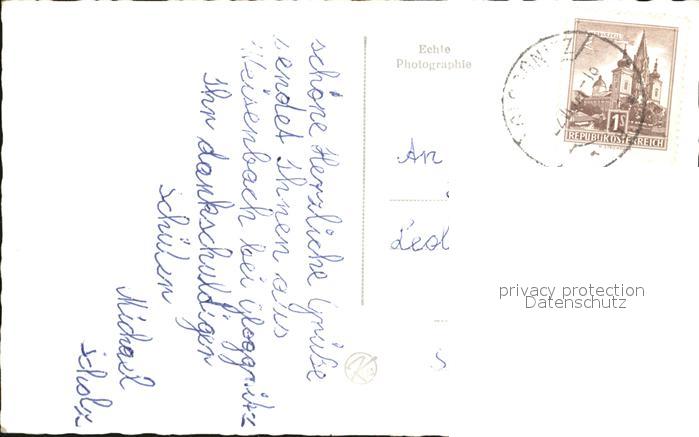 schöne Herzliche Grüße
sendet Ihnen aus
Weisenbach bei Gloggnitz
Ihr dankschuldiger
Schüler
Michael
Scholz
Echte
Photographie
An
Leol
1S
REPUBLIK ÖSTERREICH
privacy protection
Datenschutz